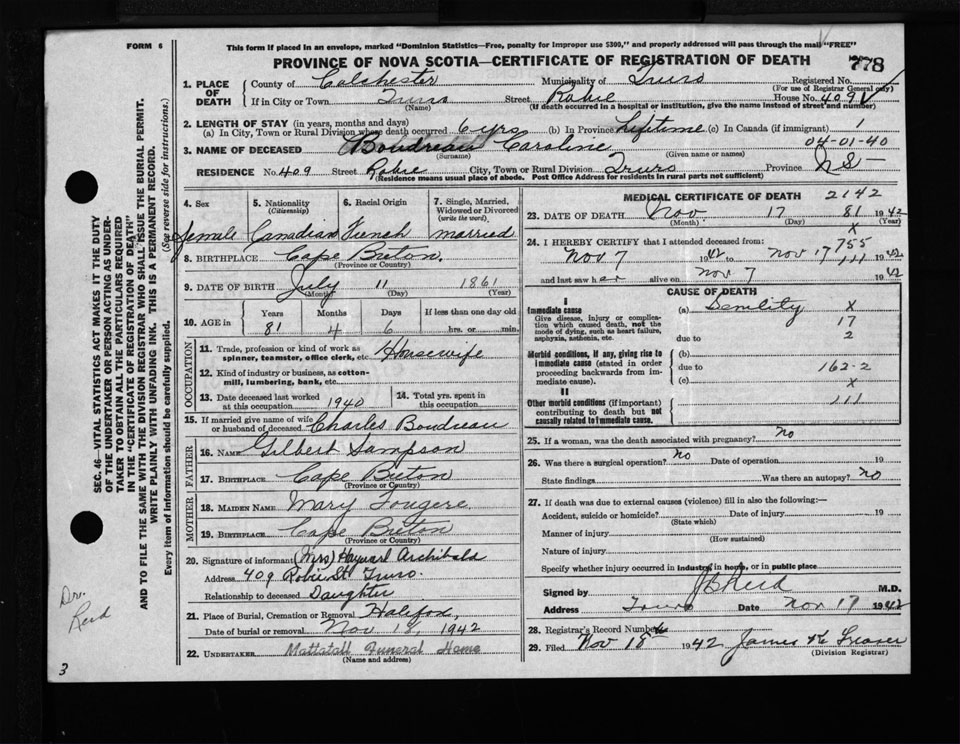 FORM 6
This form if placed in an envelope, marked "Dominion Statistics—Free, penalty for improper use $300," and properly addressed will pass through the mail "FREE"
PROVINCE OF NOVA SCOTIA—CERTIFICATE OF REGISTRATION OF DEATH
778
1. PLACE OF DEATH
County of Colchester Municipality of Truro Registered No.
(For use of Registrar General only)
If in City or Town Truro Street Robie House No. 409
(Name) (If death occurred in a hospital or institution, give the name instead of street and number)
2. LENGTH OF STAY (in years, months and days)
(a) In City, Town or Rural Division where death occurred 6 yrs (b) In Province Lifetime (c) In Canada (if immigrant) 1
04-01-40
3. NAME OF DECEASED Boudreau Caroline
(Surname) (Given name or names)
RESIDENCE No. 409 Street Robie City, Town or Rural Division Truro Province N S
(Residence means usual place of abode. Post Office Address for residents in rural parts not sufficient)
4. Sex
female
5. Nationality (Citizenship)
Canadian
6. Racial Origin
French
7. Single, Married, Widowed or Divorced (write the word)
married
8. BIRTHPLACE Cape Breton
(Province or Country)
9. DATE OF BIRTH July 11 1861
(Month) (Day) (Year)
10. AGE in Years Months Days If less than one day old
81 4 6 hrs. or min.
OCCUPATION
11. Trade, profession or kind of work as spinner, teamster, office clerk, etc Housewife
12. Kind of industry or business, as cotton-mill, lumbering, bank, etc.
13. Date deceased last worked at this occupation 1940
14. Total yrs. spent in this occupation
15. If married give name of wife or husband of deceased Charles Boudreau
FATHER
16. NAME Gilbert Sampson
17. BIRTHPLACE Cape Breton
(Province or Country)
MOTHER
18. MAIDEN NAME Mary Fougere
19. BIRTHPLACE Cape Breton
(Province or Country)
20. Signature of informant (Mrs) Hayward Archibald
Address 409 Robie St Truro.
Relationship to deceased Daughter
21. Place of Burial, Cremation or Removal Halifax,
Date of burial or removal Nov 18, 1942
22. UNDERTAKER Mattatall Funeral Home
(Name and address)
MEDICAL CERTIFICATE OF DEATH 2142
23. DATE OF DEATH Nov 17 81 1942
(Month) (Day) (Year)
X
24. I HEREBY CERTIFY that I attended deceased from:
755
Nov 7 1942 to Nov 17 111 1942
and last saw her alive on Nov 7 1942
CAUSE OF DEATH
I
Immediate cause
Give disease, injury or complication which caused death, not the mode of dying, such as heart failure, asphyxia, asthenia, etc.
(a) Senility X
17
due to 2
Morbid conditions, if any, giving rise to immediate cause (stated in order proceeding backwards from immediate cause).
(b)
due to 162-2
(c) X
II
Other morbid conditions (if important) contributing to death but not causally related to immediate cause.
111
25. If a woman, was the death associated with pregnancy? no
26. Was there a surgical operation? no Date of operation 19
State findings Was there an autopsy? no
27. If death was due to external causes (violence) fill in also the following:—
Accident, suicide or homicide? Date of injury 19
(State which)
Manner of injury
(How sustained)
Nature of injury
Specify whether injury occurred in industry, in home, or in public place
Signed by J B Reid M.D.
Address Truro Date Nov 17 1942
28. Registrar's Record Number
29. Filed Nov 18 1942 James
(Division Registrar)
SEC. 46—VITAL STATISTICS ACT MAKES IT THE DUTY
OF THE UNDERTAKER OR PERSON ACTING AS UNDER-
TAKER TO OBTAIN ALL THE PARTICULARS REQUIRED
IN THE "CERTIFICATE OF REGISTRATION OF DEATH"
AND TO FILE THE SAME WITH THE DIVISION REGISTRAR WHO SHALL ISSUE THE BURIAL PERMIT.
WRITE PLAINLY WITH UNFADING INK. THIS IS A PERMANENT RECORD.
Every item of information should be carefully supplied. (See reverse side for instructions.)
Dr.
Reid
3